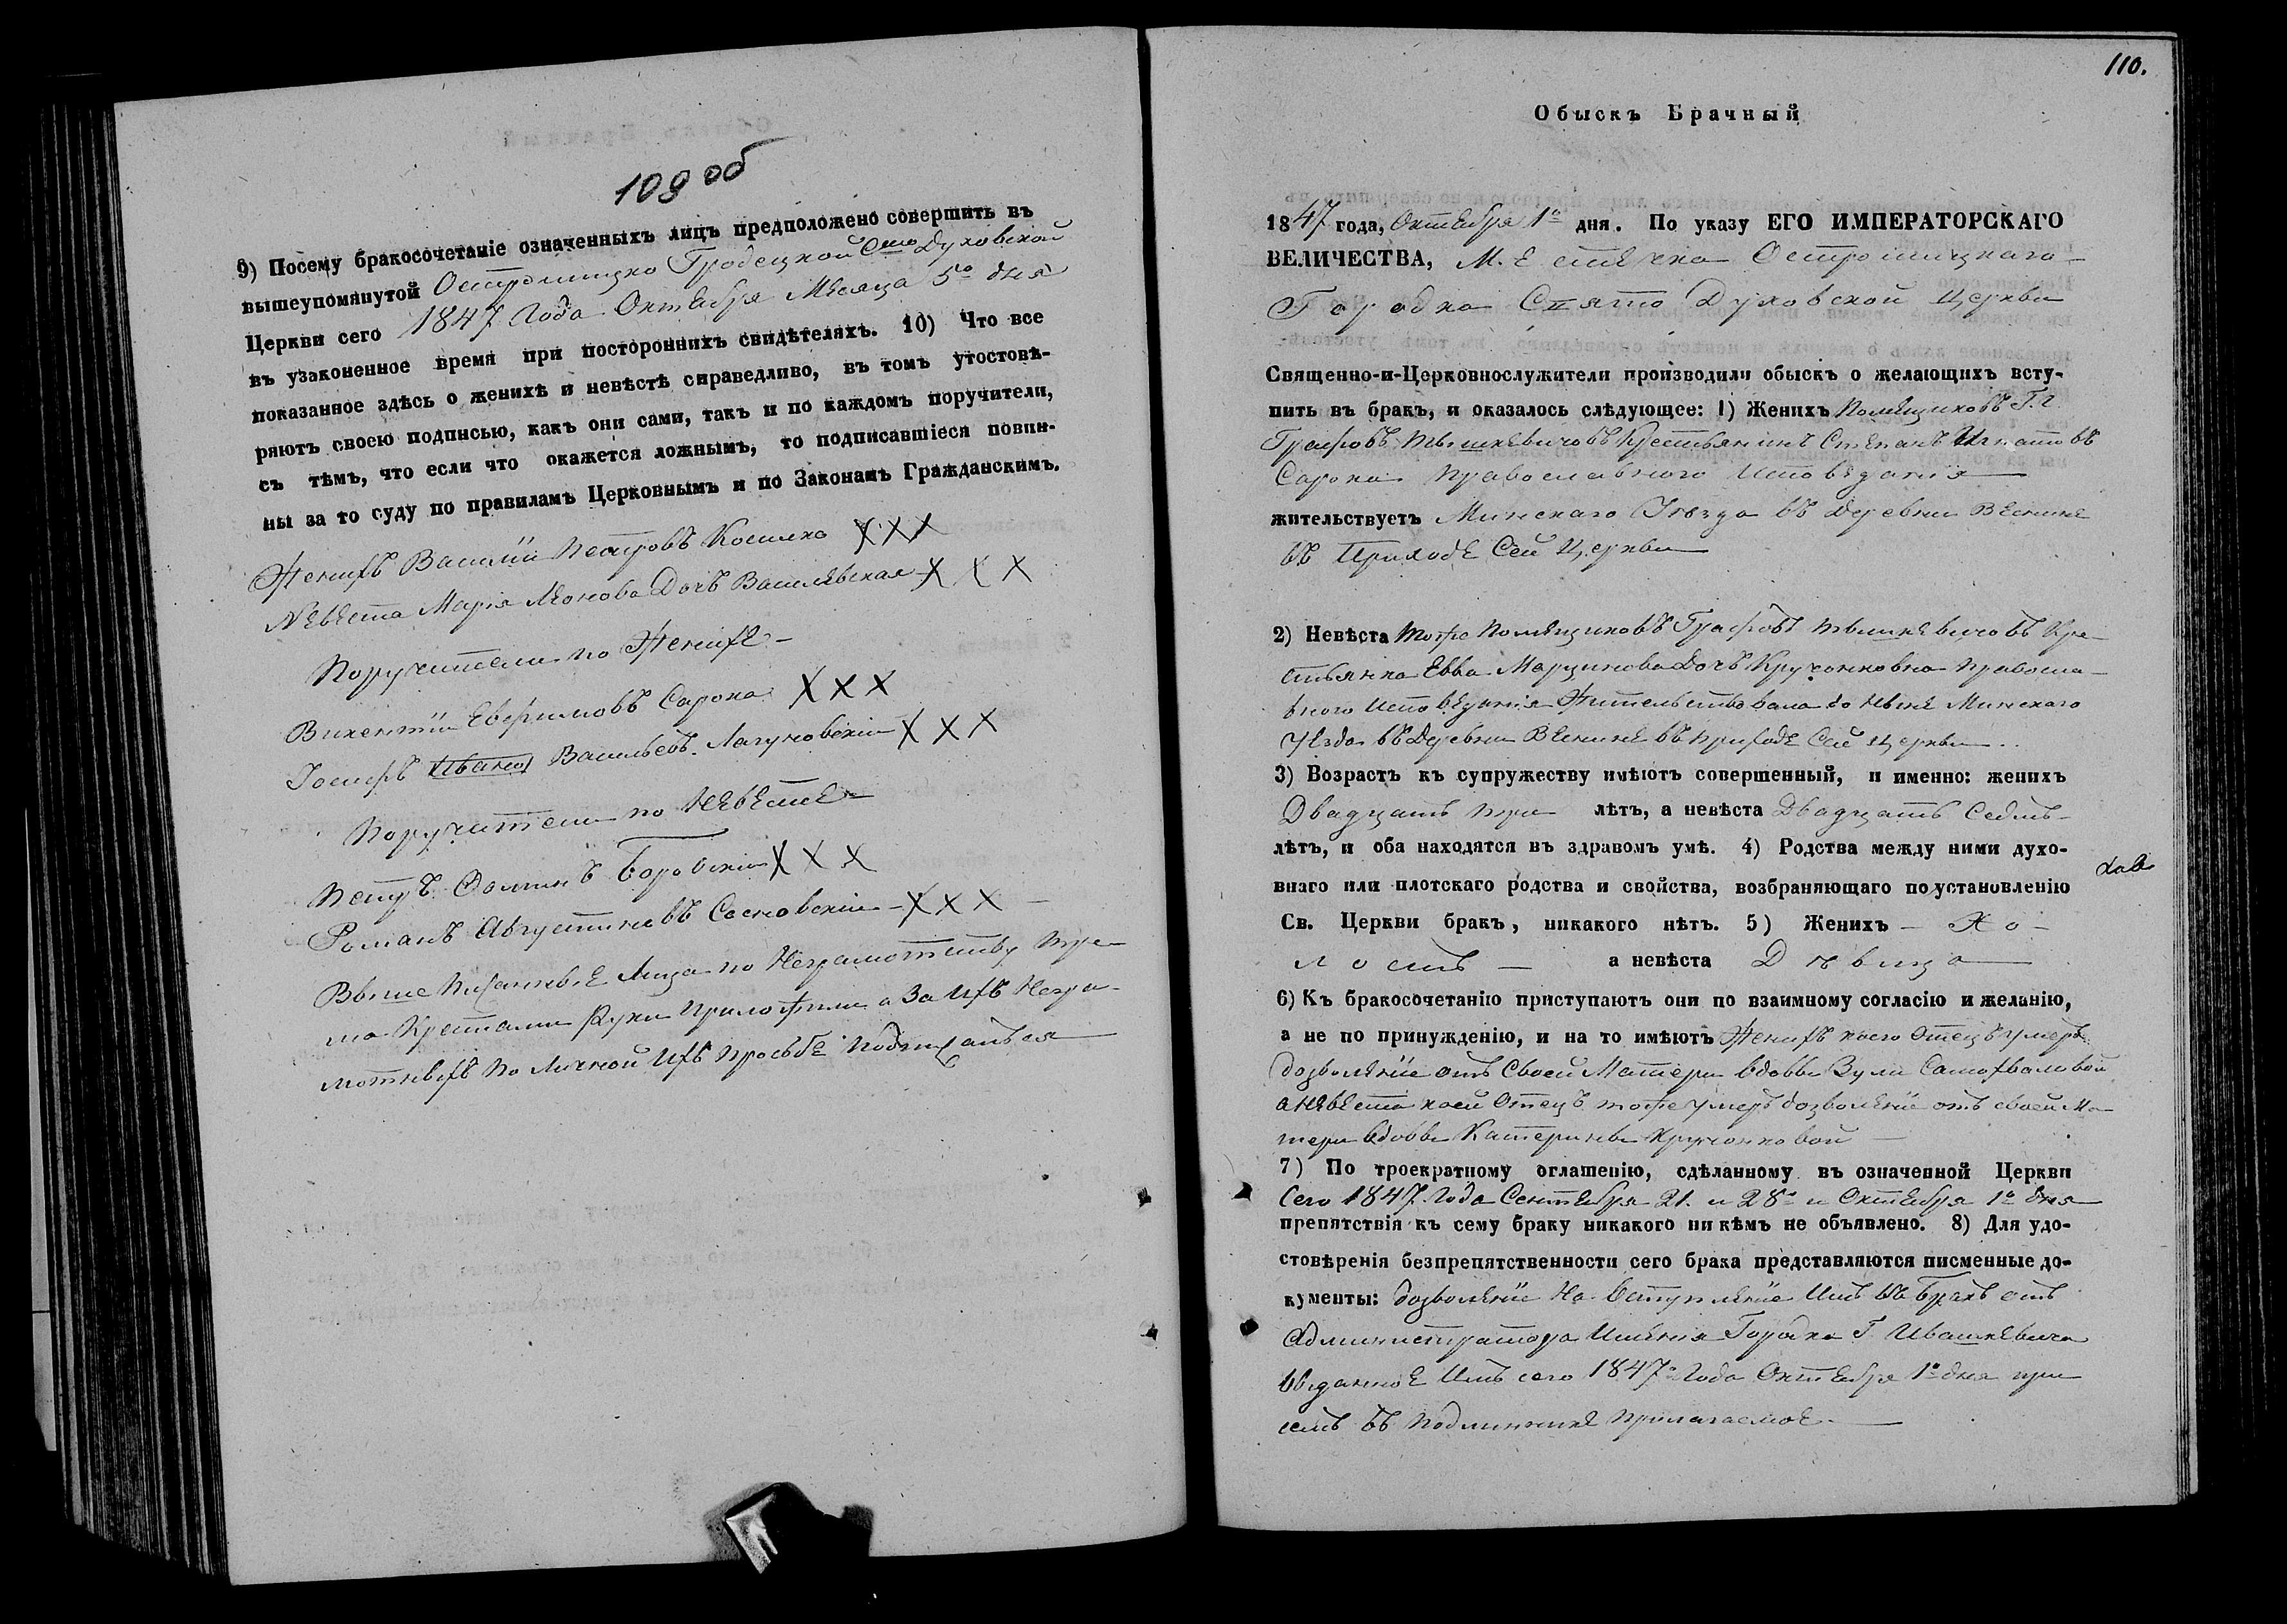 109 об
9) Посему бракосочетаніе означенныхъ лицъ предположено совершить въ
вышеупомянутой Острошицко Гродецкой Свято Духовской
Церкви сего 1847 Года Октября Месяца 5º дня
въ узаконенное время при постороннихъ свидѣтеляхъ. 10) Что все
показанное здѣсь о женихѣ и невѣстѣ справедливо, въ томъ утостовѣ-
ряютъ своею подписью, какъ они сами, такъ и по каждомъ поручители,
съ тѣмъ, что если что окажется ложнымъ, то подписавшіеся повин-
ны за то суду по правиламъ Церковнымъ и по Законамъ Гражданскимъ.
Женихъ Василій Петровъ Косилко ХХХ
Невеста Марія Леонова Дочъ Василевская Х Х Х
Поручители по Женихе-
Викентій Евфимовъ Сорока ХХХ
Іосифъ Васильевъ Лагуновскій Х Х Х
Поручители по Невесте
Петръ Боровскій Х Х Х
Романъ Августиновъ Сосновскій - Х Х Х
Выше писанные Лица по Неграмотству тре-
мя Крестами Руки приложили а За Ихъ Негра-
мотныхъ по Личной Ихъ прозьбе подписался
110.
Обыскъ Брачный
1847 года, Октября 1º дня. По указу ЕГО ИМПЕРАТОРСКАГО
ВЕЛИЧЕСТВА, Местечка Острошицкаго
Городка Свято Духовской Церкви
Священно-и-Церковнослужители производили обыскъ о желающихъ всту-
пить въ бракъ, и оказалось слѣдующее: 1) Женихъ Помещиковъ Г.г.
Графовъ Тышкевичовъ Крестьянинъ Степанъ Игнатовъ
Сорока православного исповеданія
жительствуетъ Минскаго Уезда въ деревни Веснине
въ Приходе Сей Церкви
2) Невѣста тоже Помещиковъ Графовъ Тышкевичовъ Кре-
стьянка Евва Марцинова Дочъ Кручонковна правосла-
вного исповеданія Жительствовала до Ныне Минскаго
Уезда въ Деревни Веснине въ приходе Сей Церкви
3) Возрастъ къ супружеству имѣютъ совершенный, и именно: женихъ
Двадцать три лѣтъ, а невѣста Двадцать Седмь
лѣтъ, и оба находятся въ здравомъ умѣ. 4) Родства между ними духо-
внаго или плотскаго родства и свойства, возбраняющаго по установленію
Св. Церкви бракъ, никакого нѣтъ. 5) Женихъ – Хо-
лостъ – а невѣста Дѣвица
6) Къ бракосочетанію приступаютъ они по взаимному согласію и желанію,
а не по принужденію, и на то имѣютъ Женихъ коего Отецъ умеръ
дозволеніе отъ Своей Матери вдовы Зули Самохваловой
а Невеста коей Отецъ тоже умеръ дозволеніе отъ своей Ма-
тери вдовы Катерины Кручонковой
7) По троекратному оглашенію, сдѣланному въ означенной Церкви
Сего 1847 Года Сентября 21. и 28º и Октября 1º дня
препятствія къ сему браку никакого ни кѣмъ не объявлено. 8) Для удо-
стовѣренія безпрепятственности сего брака представляются писменные до-
кументы: дозволеніе На Вступленіе Имъ въ Бракъ отъ
Администратора Именія Городка Г. Ивашкевича
выданное Имъ сего 1847º Года Октября 1º дня при
семъ въ подлиннике прилагаемое